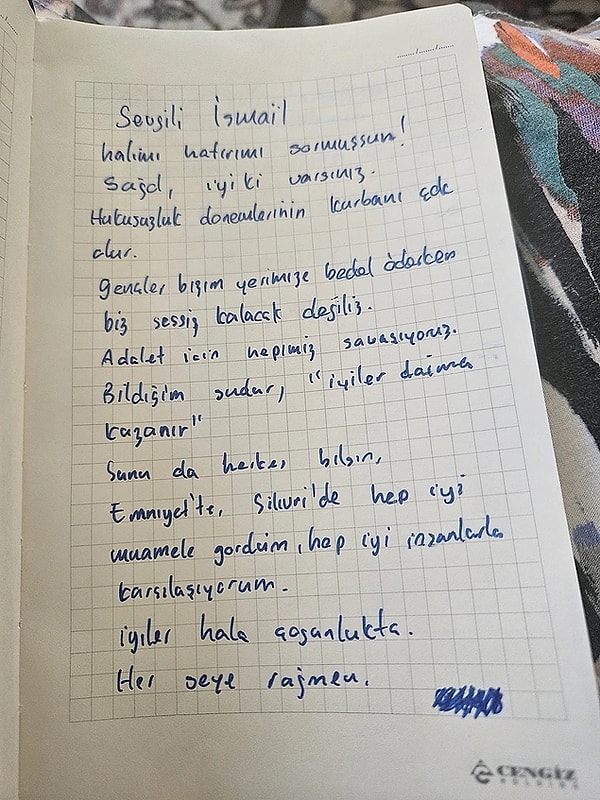 ....../....../......
Sevgili İsmail
halimi hatırımı sormuşsun!
Sağol, iyi ki varsınız.
Hukusuzluk donemlerinin kurbanı çok
olur.
gençler bizim yerimize bedel öderken
biz sessiz kalacak değiliz.
Adalet için hepimiz savaşıyoruz.
Bildiğim şudur, "iyiler daima
kazanır"
Şunu da herkes bilsin,
Emniyet'te, Silivri'de hep iyi
muamele gördüm, hep iyi insanlarla
karşılaşıyorum.
iyiler hala çoğunlukta.
Her şeye rağmen.
CENGİZ
HOLDİNG